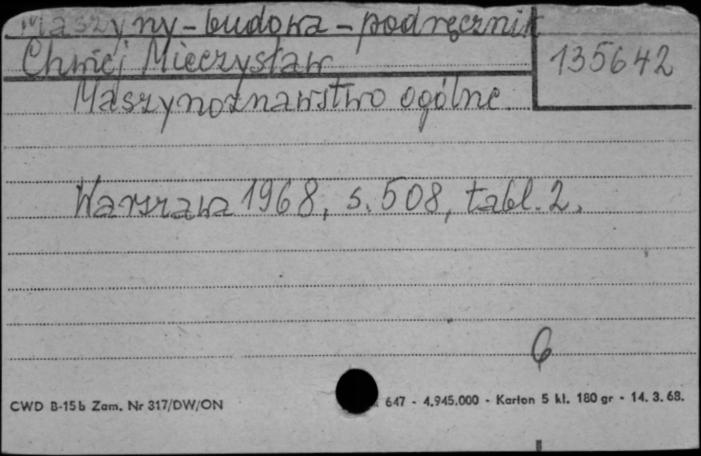 Maszyny - budowa - podręcznik
Chwiej Mieczysław
135642
Maszynoznawstwo ogólne.
Warszawa 1968, s. 508, tabl. 2.
CWD B-15b Zam. Nr 317/DW/ON 647 - 4.945.000 - Karton 5 kl. 180 gr - 14. 3. 68.